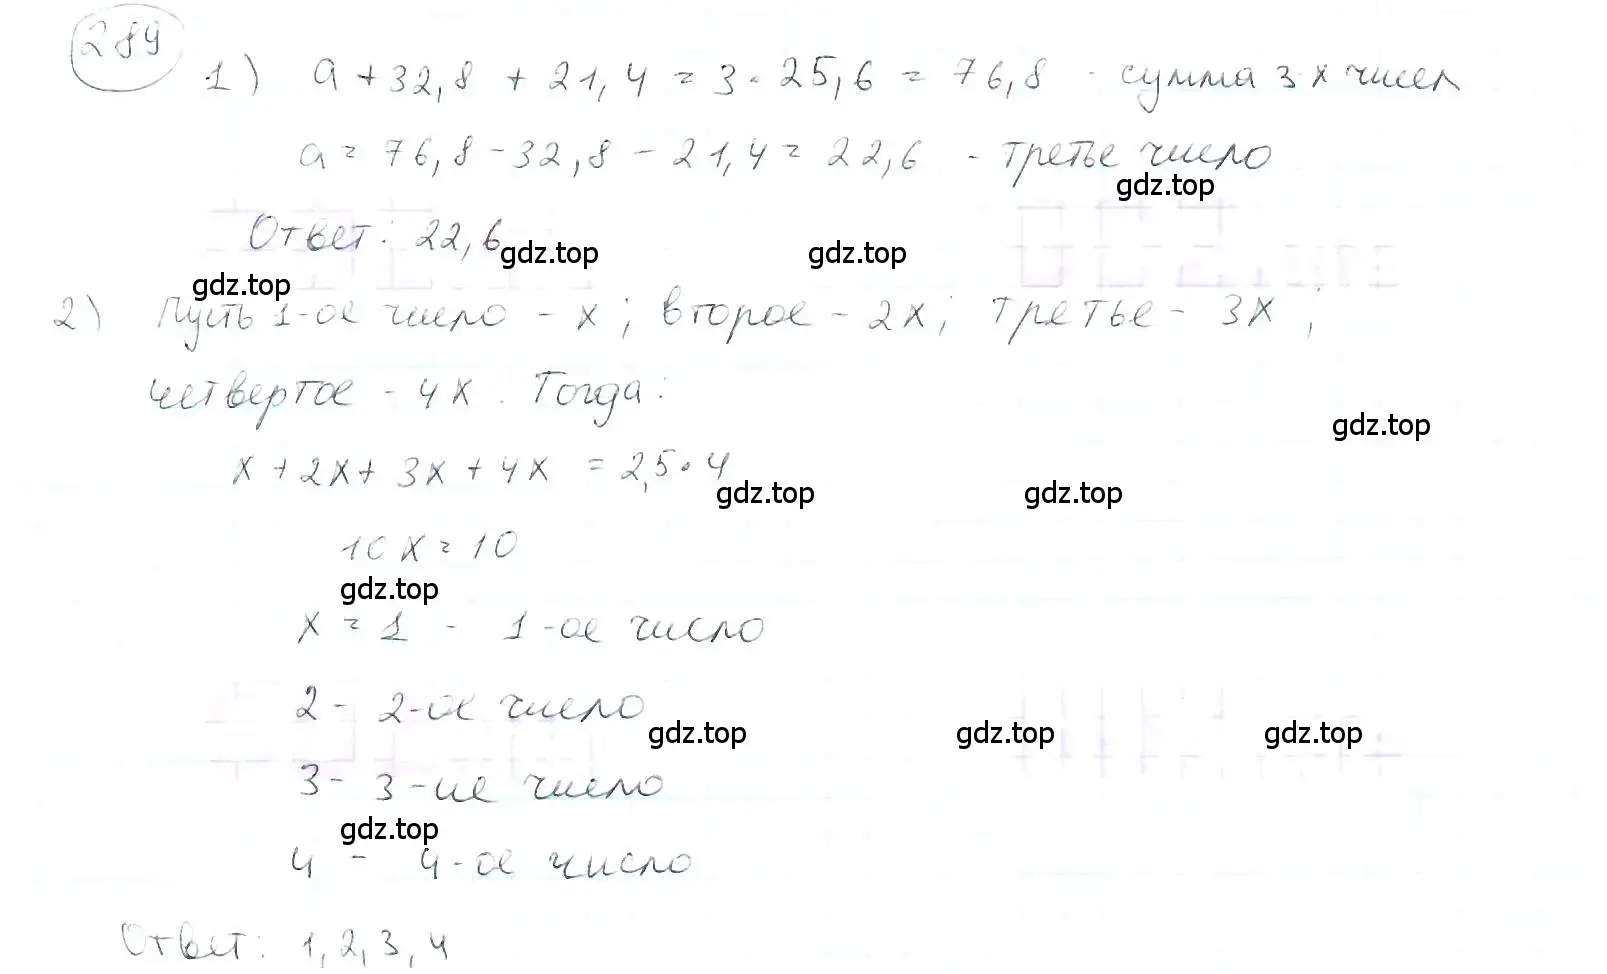 289
1) a + 32,8 + 21,4 = 3 · 25,6 = 76,8 - сумма 3-х чисел
a = 76,8 - 32,8 - 21,4 = 22,6 - третье число
gdz.top
Ответ: 22,6
gdz.top gdz.top
gdz.top
2) Пусть 1-ое число - x; второе - 2x; третье - 3x;
четвертое - 4x. Тогда:
gdz.top
x + 2x + 3x + 4x = 2,5 · 4
gdz.top gdz.top
10x = 10
gdz.top
x = 1 - 1-ое число
2 - 2-ое число
gdz.top gdz.top gdz.top
3 - 3-ие число
gdz.top
4 - 4-ое число
Ответ: 1, 2, 3, 4